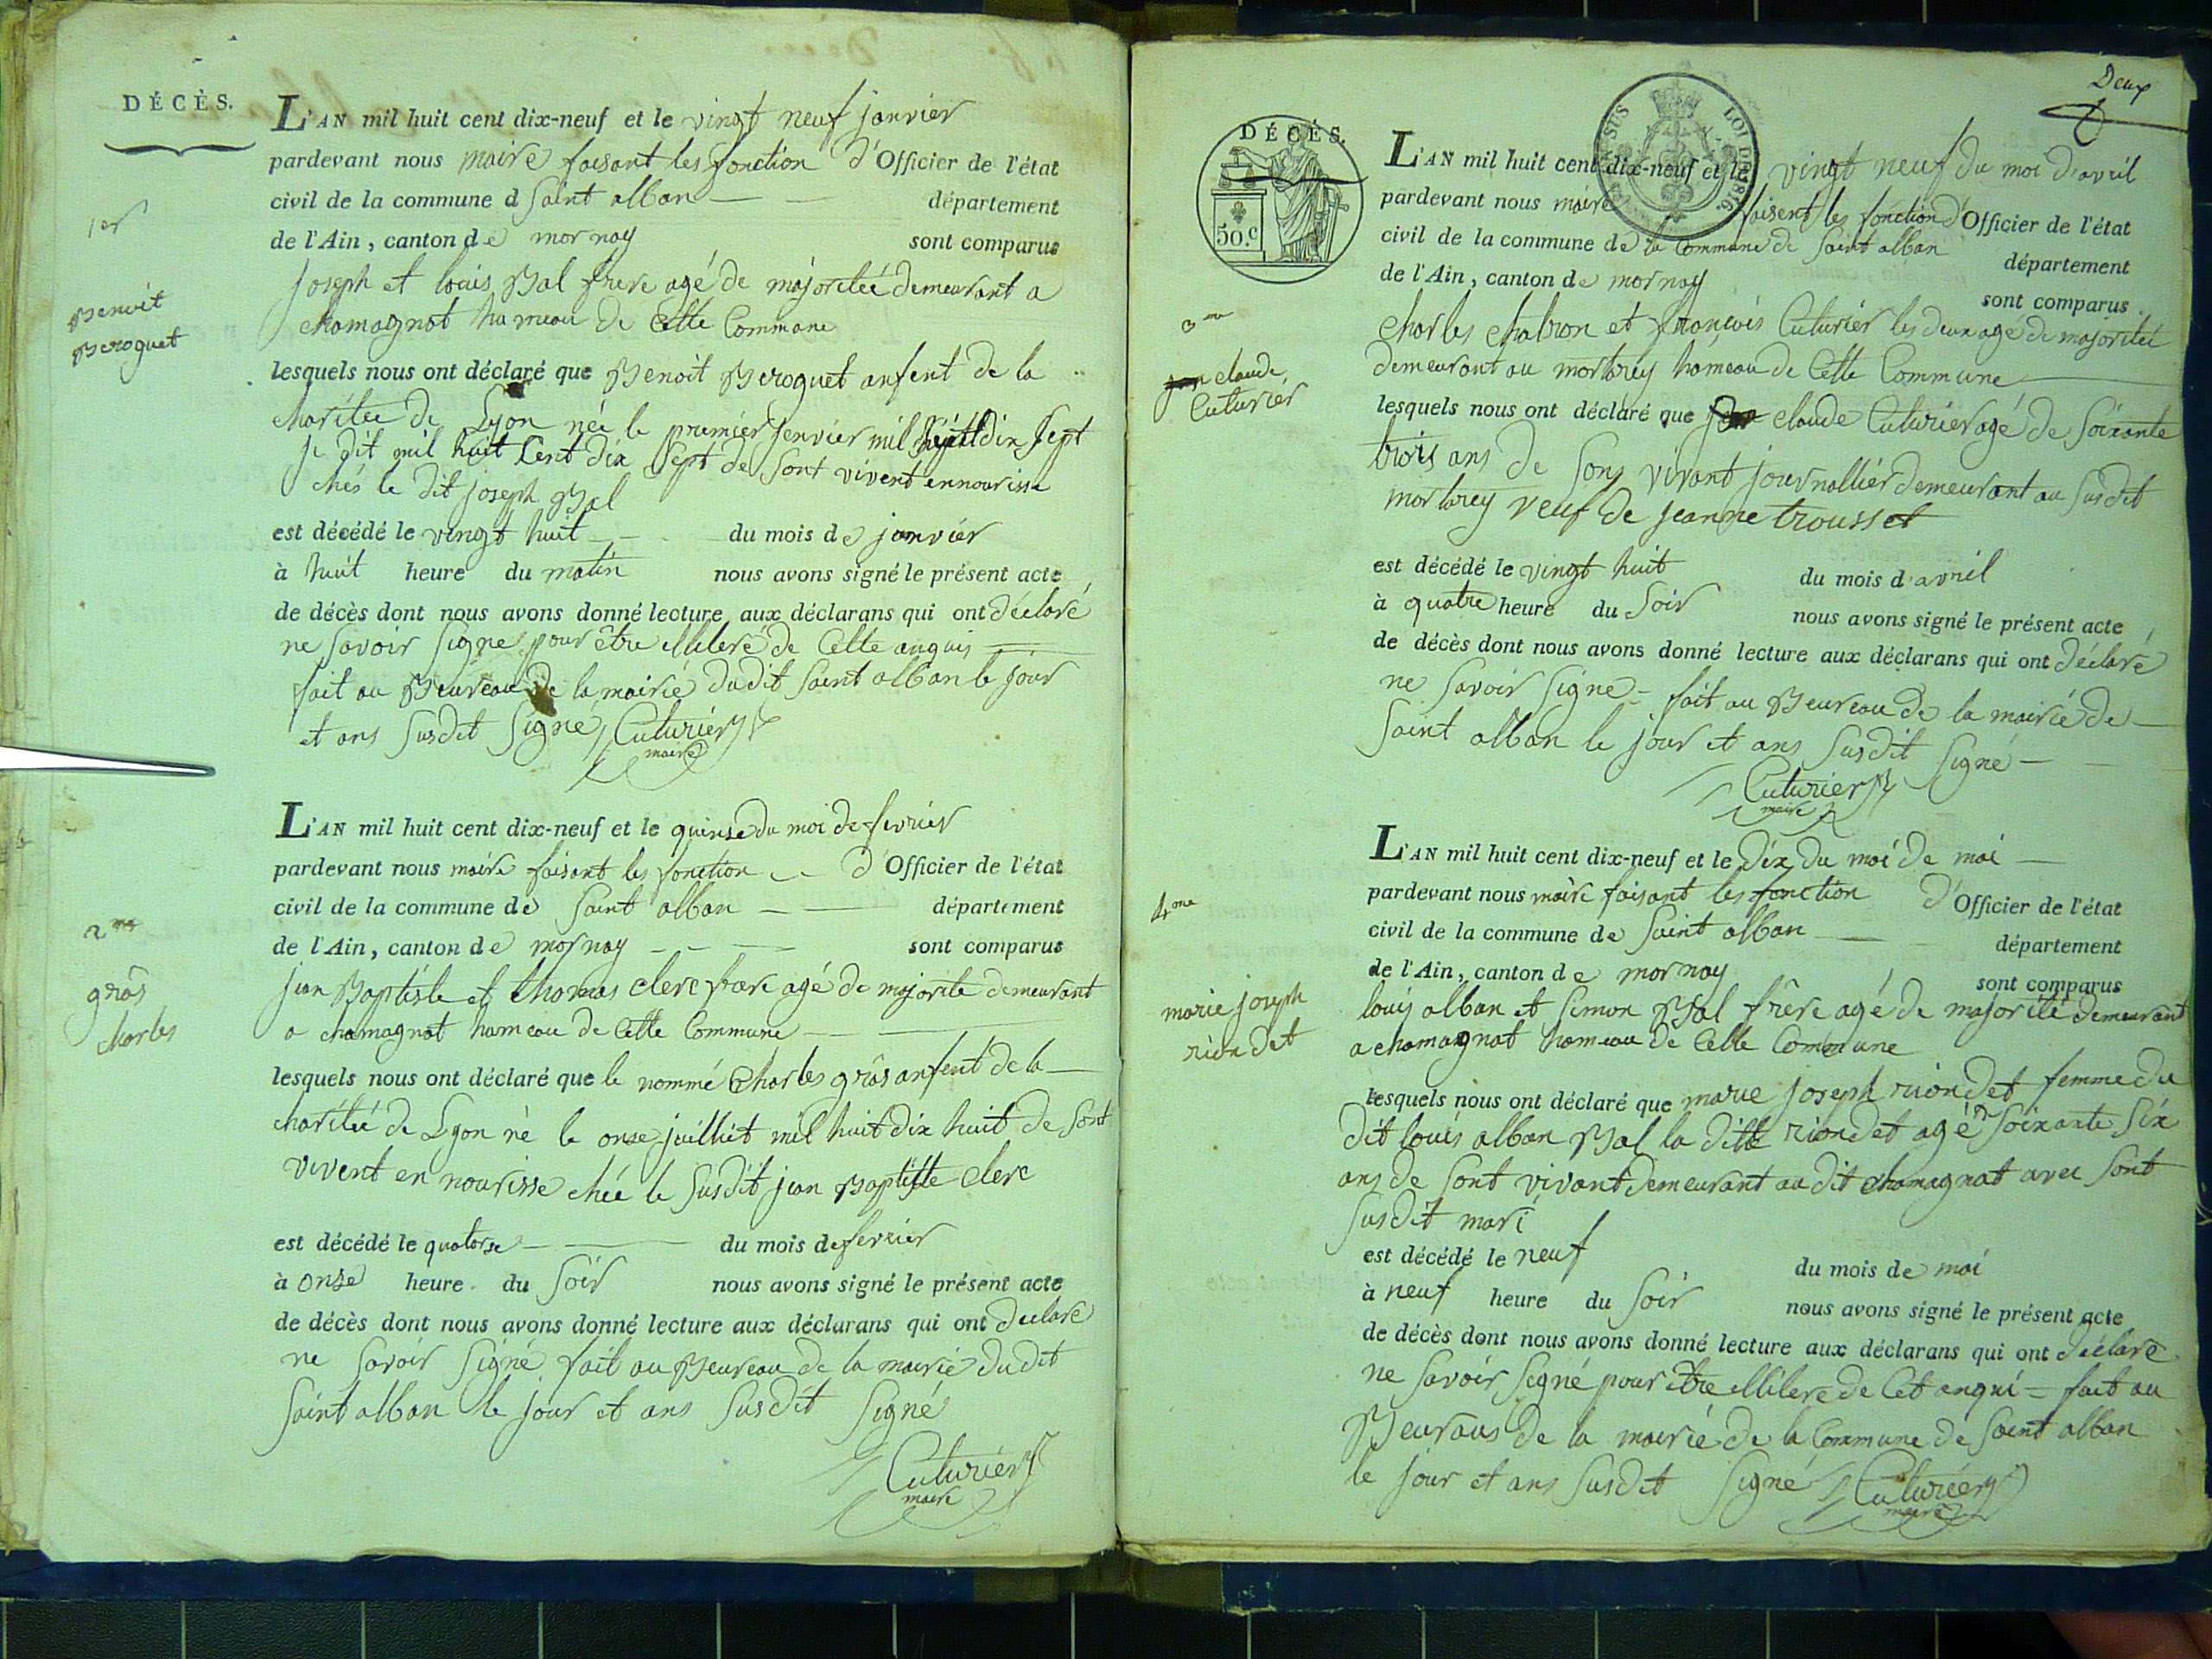 DÉCÈS.
L'AN mil huit cent dix-neuf et le vingt neuf janvier
pardevant nous maire faisant les fonction d'Officier de l'état
civil de la commune d Saint alban département
de l'Ain, canton de mornay sont comparus
1er
joseph et louis Bal frere agé de majoritée demeurant a
chamagnat hameau de Cette Commune
Benoit
Beroquet
lesquels nous ont déclaré que Benoit Beroquet anfent de la
charitée de Lyon née le premier jenvier mil dix sept
je dit mil huit Cent dix Sept de Sont vivent ennourisse
chés le dit joseph Bal
est décédé le vingt huit du mois de janvier
à huit heure du matin nous avons signé le présent acte
de décès dont nous avons donné lecture aux déclarans qui ont déclaré
ne Savoir Signe pour être illileré de Cette anquis
fait au Beureau de la mairie dudit Saint alban le jour
et ans Susdit Signé Cuturier
maire
L'AN mil huit cent dix-neuf et le quinse du moi de fevrier
pardevant nous maire faisant les fonction d'Officier de l'état
civil de la commune de Saint alban département
de l'Ain, canton de mornay sont comparus
2me
jean Baptiste et thomas clerc frere agé de majorite demeurant
a chamagnat hameau de Cette Commune
grâs
charles
lesquels nous ont déclaré que le nommé Charles grâs anfent de la
charitée de Lyon né le onse juilliet mil huit dix huit de Sont
vivent en nourisse chée le Susdit jean Baptiste clerc
est décédé le quatorse du mois de fevrier
à onse heure du Soir nous avons signé le présent acte
de décès dont nous avons donné lecture aux déclarans qui ont declaré
ne Savoir Signé fait au Beureau de la mairie dudit
Saint alban le jour et ans Susdit Signé
Cuturier
maire
Deux
DÉCÈS.
50.c
SUS LOI DE 1816.
L'AN mil huit cent dix-neuf et le vingt neuf du moi d'avril
pardevant nous maire faisent les fonction d'Officier de l'état
civil de la commune de la Commune de Saint alban département
de l'Ain, canton de mornay sont comparus
3me
charles chatron et francois Cuturier les deux agé de majoritée
demeurant au mortarey hameau de Cette Commune
claude
Cuturier
lesquels nous ont déclaré que claude Cuturier agé de Soixante
trois ans de Sons vivant journallier demeurant au Susdit
mortarey veuf de jeanne trousset
est décédé le vingt huit du mois d'avril
à quatre heure du Soir nous avons signé le présent acte
de décès dont nous avons donné lecture aux déclarans qui ont déclaré
ne Savoir Signe fait au Beureau de la mairie de
Saint alban le jour et ans Susdit Signé
Cuturier
maire
L'AN mil huit cent dix-neuf et le dix du moi de mai
pardevant nous maire faisant les fonction d'Officier de l'état
civil de la commune de Saint alban département
de l'Ain, canton de mornay sont comparus
4me
louis alban et Simon Bal frêre agé de majorité demeurant
a chamagnat hameau de Cette Commune
marie joseph
riondet
lesquels nous ont déclaré que marie joseph riondet femme du
dit louis alban Bal la ditte riondet agé de Soixante Six
ans de Sont vivant demeurant au dit chamagnat avec Sont
Susdit mari
est décédé le neuf du mois de mai
à neuf heure du Soir nous avons signé le présent acte
de décès dont nous avons donné lecture aux déclarans qui ont déclaré
ne Savoir Signé pour être illilere de Cet anqui = fait au
Beuraus de la mairie de la Commune de Saint alban
le jour et ans Susdit Signé Cuturier
maire